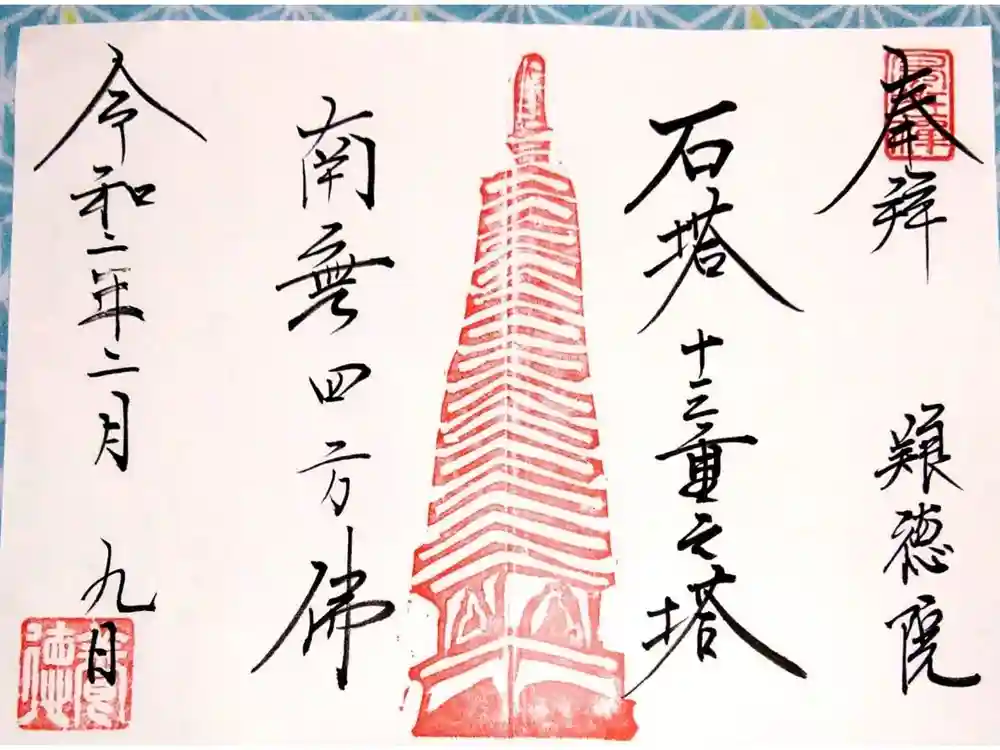 奉拝
徳院
石塔 十三重之塔
南無四方佛
令和二年二月 九日